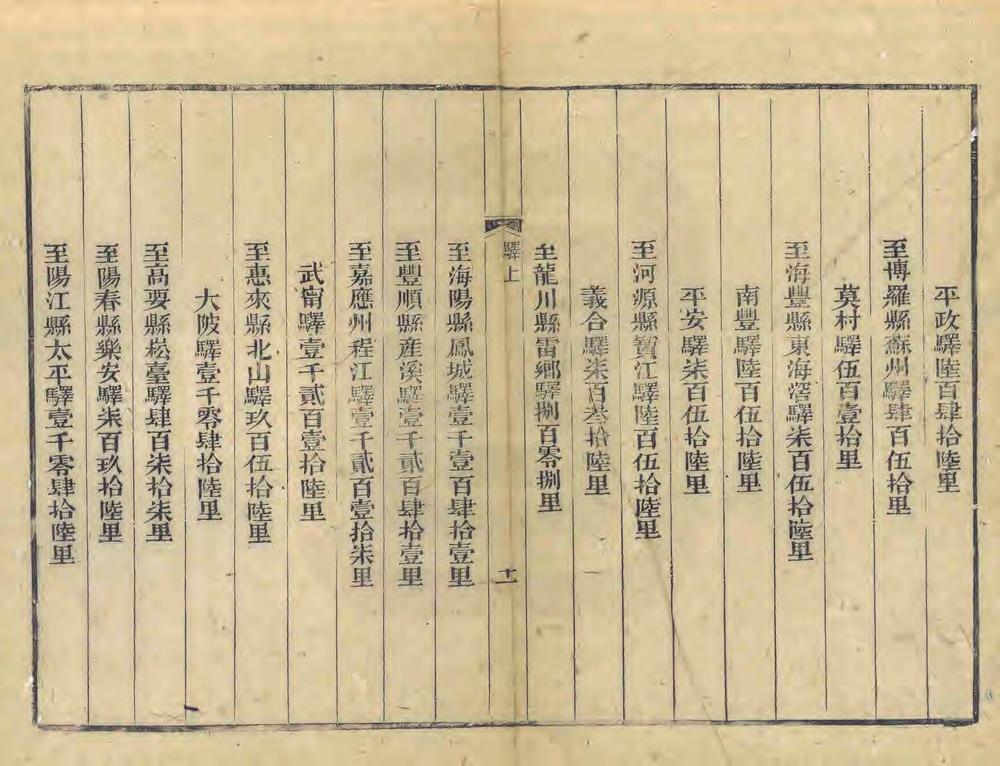 平政驛陸百肆拾陸里
至博羅縣蘇州驛肆百伍拾里
莫村驛伍百壹拾里
至海豐縣東海滘驛柒百伍拾陸里
南豐驛陸百伍拾陸里
平安驛柒百伍拾陸里
至河源縣寶江驛陸百伍拾陸里
義合驛柒百叁拾陸里
至龍川縣雷鄉驛捌百零捌里
驛上
十一
至海陽縣鳳城驛壹千壹百肆拾壹里
至豐順縣產溪驛壹千貳百肆拾壹里
至嘉應州程江驛壹千貳百壹拾柒里
武甯驛壹千貳百壹拾陸里
至惠來縣北山驛玖百伍拾陸里
大陂驛壹千零肆拾陸里
至高要縣崧臺驛肆百柒拾柒里
至陽春縣樂安驛柒百玖拾陸里
至陽江縣太平驛壹千零肆拾陸里